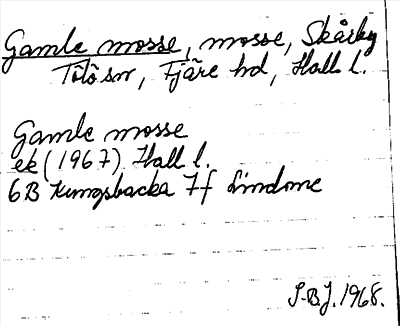 Gamle mosse, mosse, Skårby
Tölö sn, Fjäre hd, Hall l.
Gamle mosse
ek (1967) Hall l.
6B Kungsbacka 7f Lindome
S.B.J. 1968.